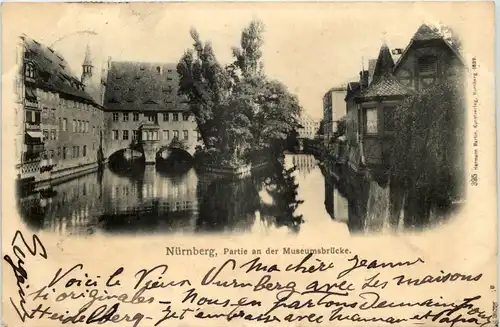 Nürnberg, Partie an der Museumsbrücke.
Hermann Martin, Kunstverlag, Nürnberg 1899.
Ma chère Jeanne
Voici le Vieux Nürnberg avec des maisons
si originales - Nous en partons demain pour
Heidelberg - Je t'embrasse avec maman et papa
Eugénie